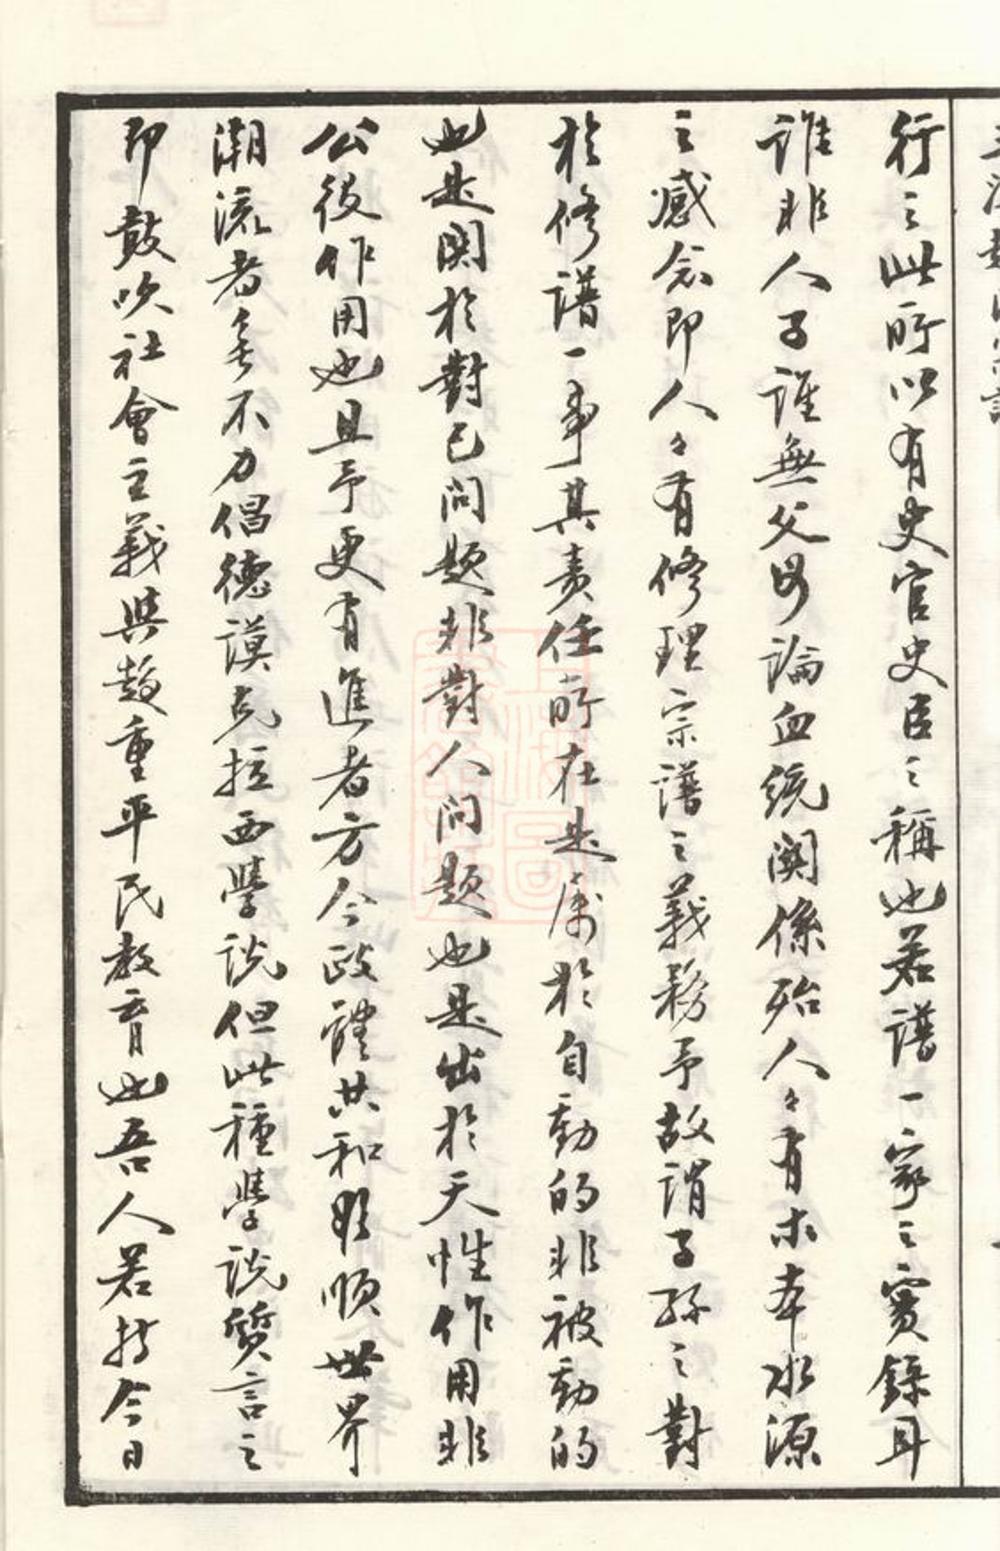 行之此所以有史官史臣之稱也若譜一家之實錄耳
誰非人子誰無父母論血統關係殆人々有木本水源
之感念即人々有修理宗譜之義務予故謂子孫之對
於修譜一事其責任所在是屬於自動的非被動的
也是関於對己问題非對人问題也是出於天性作用非
公役作用也且予更有進者方今政體共和欲順世界
潮流者無不力倡德謨克拉西學説但此種學説質言之
即鼓吹社會主義與趨重平民教育也吾人若持今日